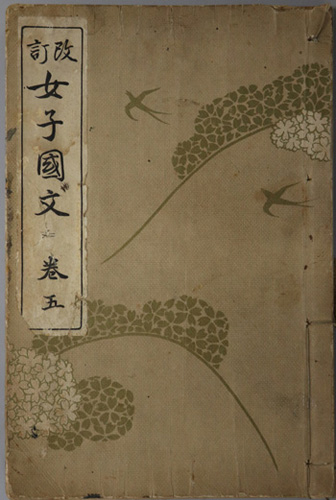 改訂
女子國文
卷五